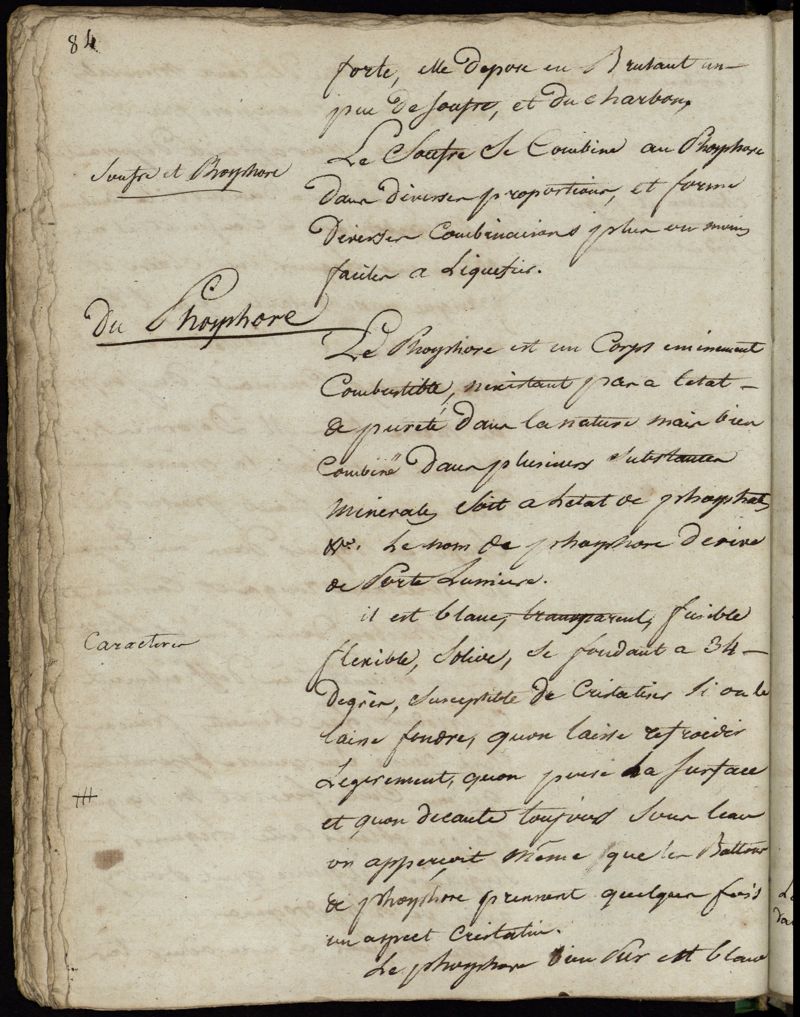 84
forte, elle depose en Brulant un
peu de soufre, et du charbon,
Soufre et Phosphore
Le Soufre se Combine au Phosphore
dans diverses proportions, et forme
diverses Combinaisons plus ou moins
faciles a Liquefier.
Du Phosphore
Le Phosphore est un Corps eminement
Combustible, nexistant pas a letat
de pureté dans la nature mais bien
Combiné dans plusieurs substances
minerales soit a letat de phosphates
&c. Le nom de phosphore derive
de Porte Lumiere.
Caracteres
il est blanc, transparent, fusible
flexible, solide, se fondant a 34
degrés, susceptible de Cristaliser si on le
laisse fondre, quon laisse refroidir
Legerement, quon perse la surface
et quon decante toujours sous leau
on apperçoit même que les Battons
de phosphore prennent quelques fois
un aspect Cristalin.
Le phosphore bien Pur est blanc